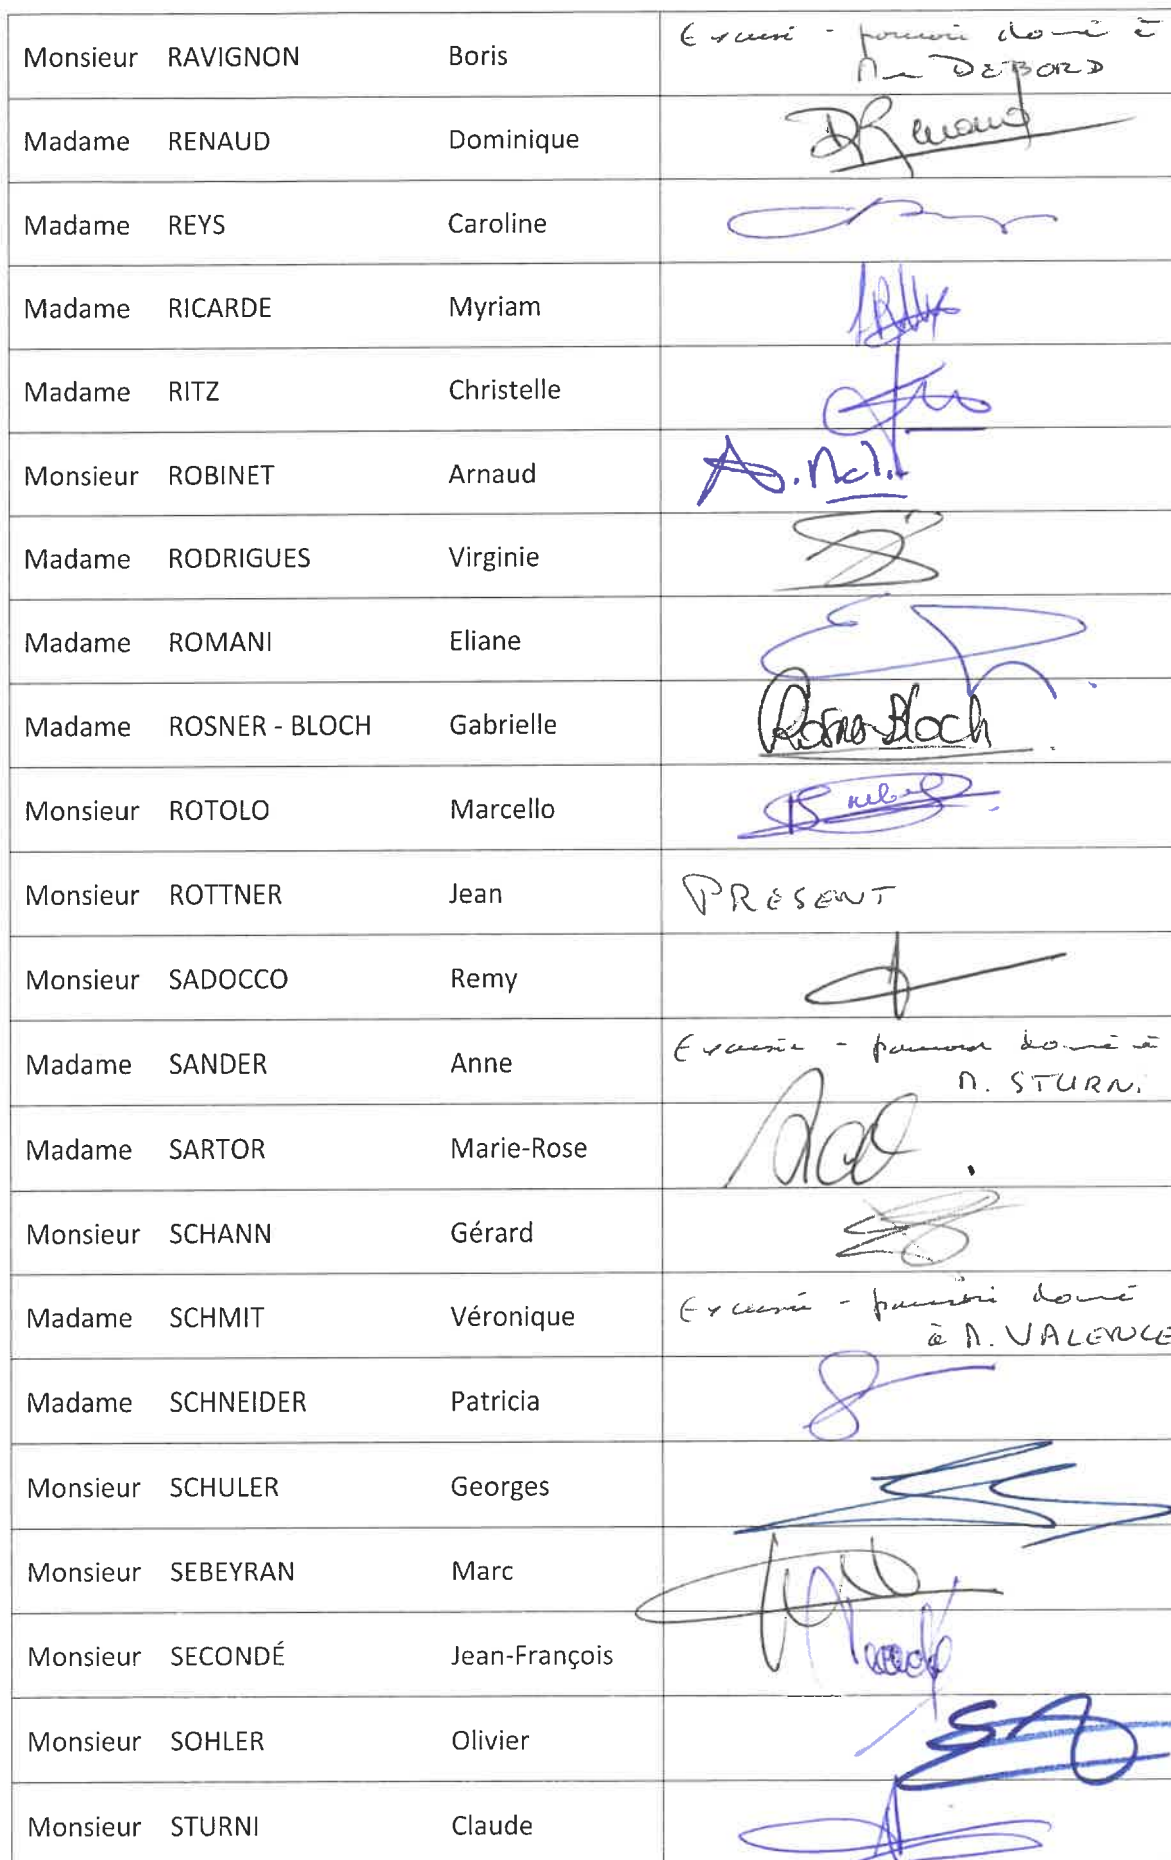 Monsieur RAVIGNON Boris Excusé - pouvoir donné à
Me DEBORD
Madame RENAUD Dominique DRenaud
Madame REYS Caroline
Madame RICARDE Myriam
Madame RITZ Christelle
Monsieur ROBINET Arnaud
Madame RODRIGUES Virginie
Madame ROMANI Eliane
Madame ROSNER - BLOCH Gabrielle Rosner Bloch
Monsieur ROTOLO Marcello
Monsieur ROTTNER Jean PRESENT
Monsieur SADOCCO Remy
Madame SANDER Anne Excusée - pouvoir donné à
M. STURNI
Madame SARTOR Marie-Rose
Monsieur SCHANN Gérard
Madame SCHMIT Véronique Excusée - pouvoir donné
à M. VALENCE
Madame SCHNEIDER Patricia
Monsieur SCHULER Georges
Monsieur SEBEYRAN Marc
Monsieur SECONDÉ Jean-François
Monsieur SOHLER Olivier
Monsieur STURNI Claude